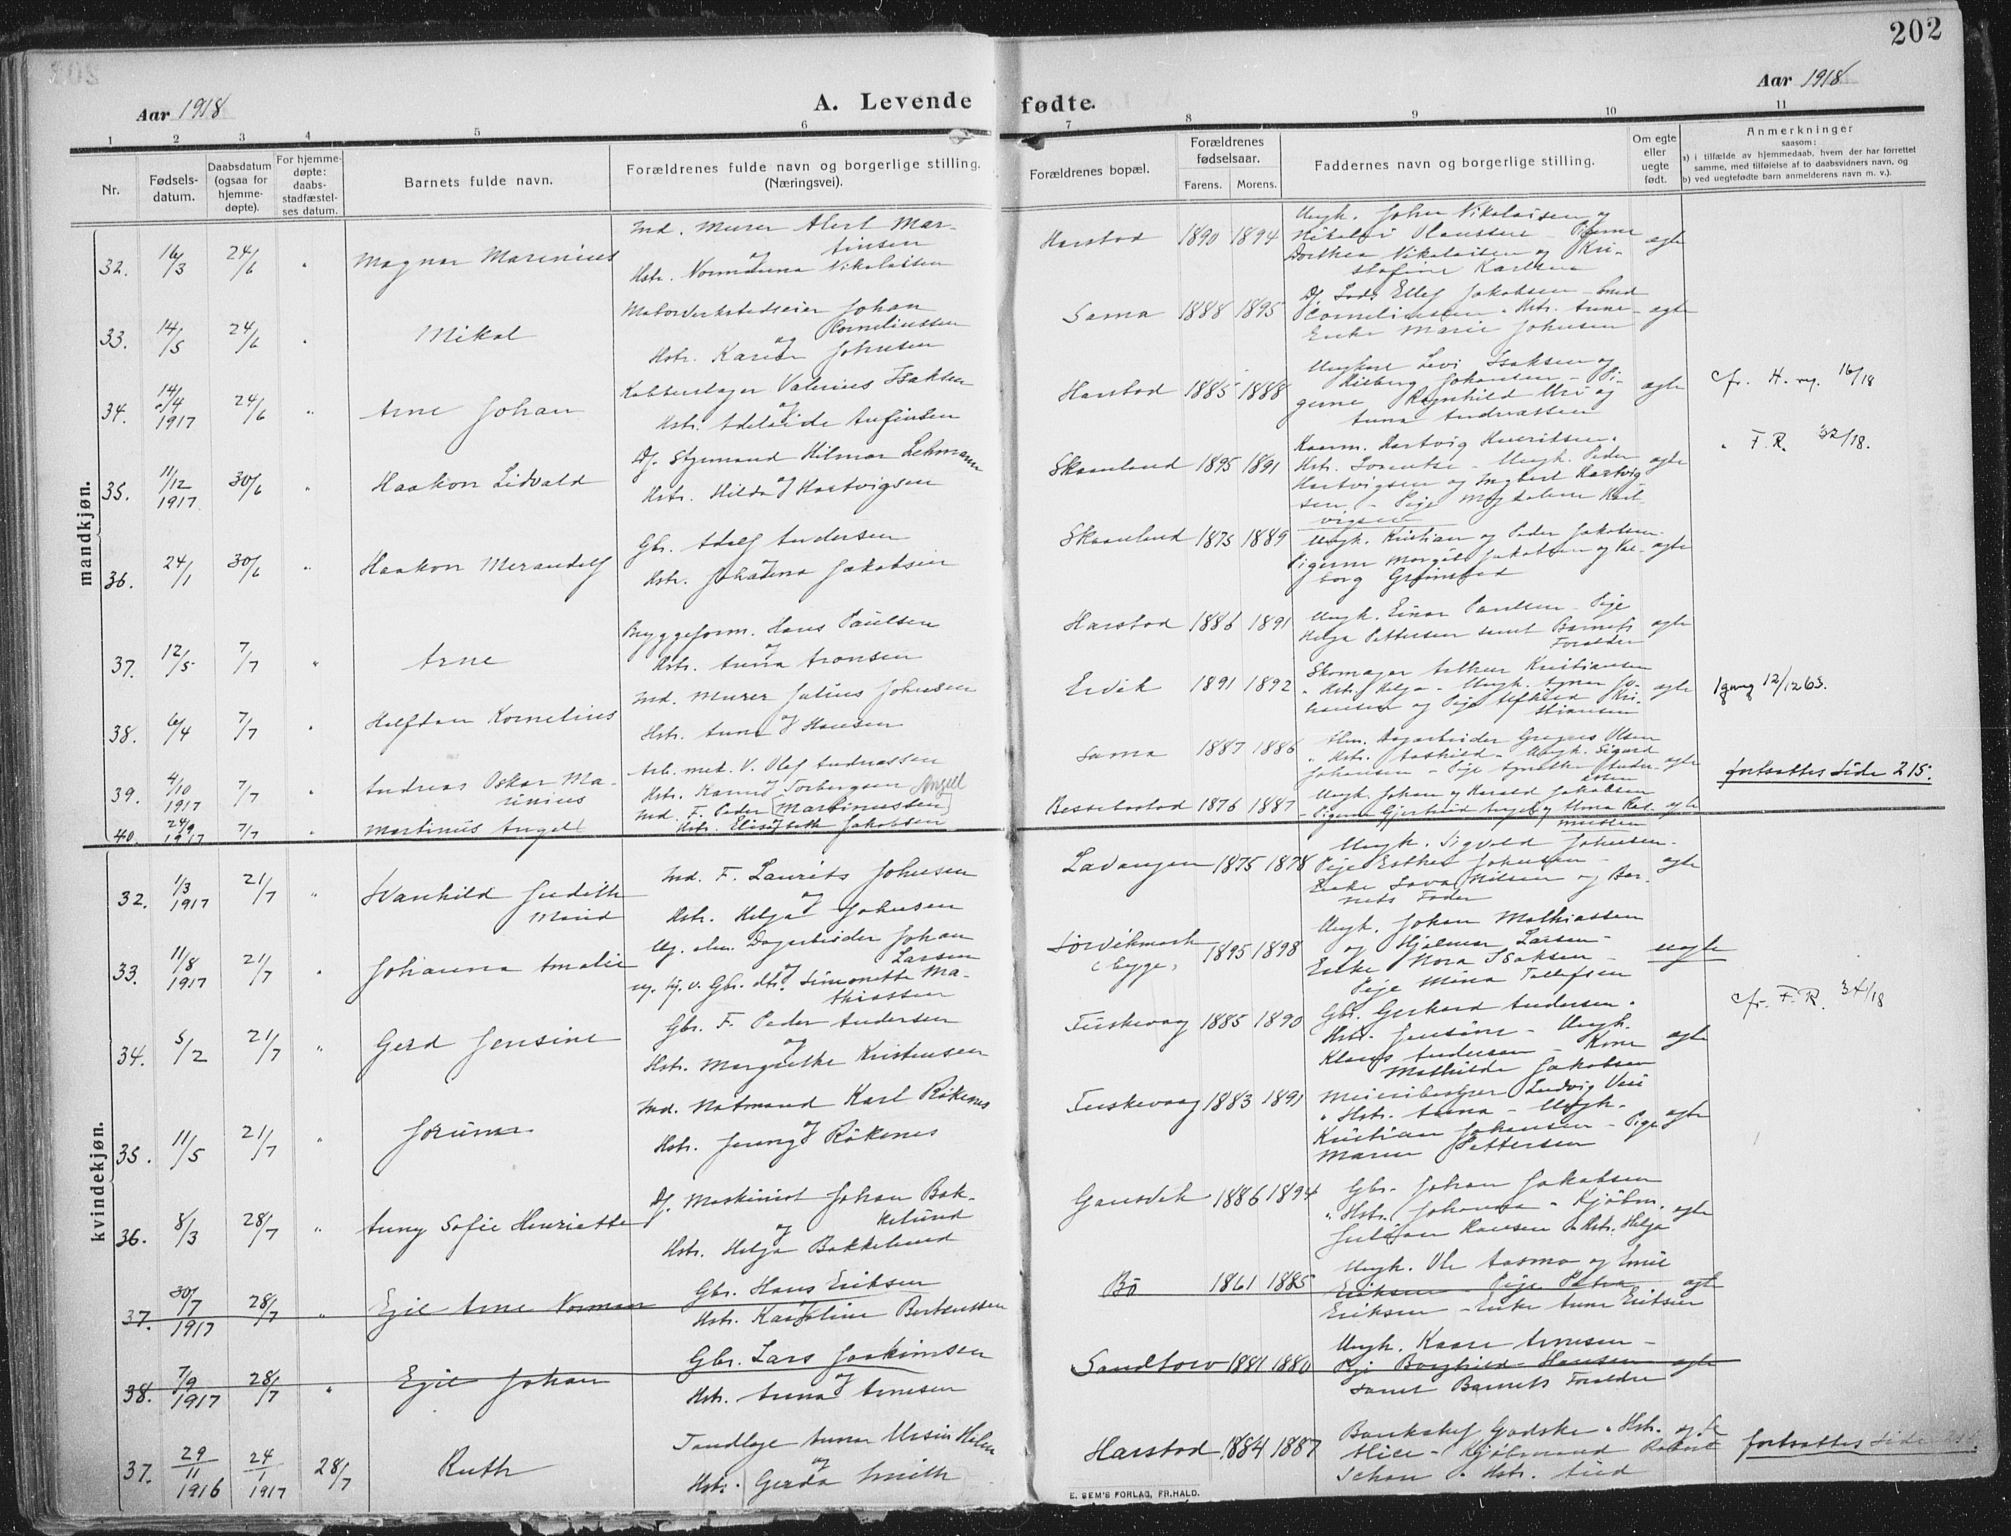 202
Aar 1918
A. Levende fødte.
Aar 1918
1 2 3 4 5 6 7 8 9 10 11
Nr.
Fødsels-
datum.
Daabsdatum
(ogsaa for
hjemme-
døpte).
For hjemme-
døpte:
daabs-
stadfæstel-
ses datum.
Barnets fulde navn.
Forældrenes fulde navn og borgerlige stilling.
(Næringsvei).
Forældrenes bopæl.
Forældrenes
fødselsaar.
Farens. Morens.
Faddernes navn og borgerlige stilling.
Om egte
eller
uegte
født.
Anmerkninger
saasom:
a) i tilfælde av hjemmedaab, hvem der har forrettet
samme, med tilføielse af to daabsvidners navn, og
b) ved uegtefødte barn anmelderens navn m. v.).
mandkjøn.
32. 16/3 24/6 " Magnar Marinius
Ind. Murer Alert Mar-
tinsen
og
Hstr. Normanna Nikolaisen
Harstad 1890 1894
Ungk. Johan Nikolaisen og
Nikolai Claussen - Pigerne
Dorthea Nikolaisen og Kri-
stofine Karlsen
egte
33. 14/5 24/6 " Mikal
Motorverkstedseier Johan
Corneliussen
og
Hstr. Karen Johnsen
Sama 1888 1895
Df. Lods Ellef Jakobsen - Emd
Corneliussen - Hstr. Anne -
Enke Marie Johnsen
egte
34. 14/4 1917 24/6 " Arne Johan
Kobberslager Valerius Isaksen
og
Hstr. Adelaide Anfinsen
Harstad 1885 1888
Ungkar Levi Isaksen og
Hilberg Johansen - Pi-
gerne Ragnhild Uri og
Anna Andreassen
egte
cfr. H. reg. 16/18
35. 11/12 1917 30/6 " Haakon Lidvald
Df. Styrmand Hilmar Lehmann
og
Hstr. Hilda Hartvigsen
Skaanland 1895 1891
Kaarm. Hartvig Henriksen.
Hstr. Lorentse - Ungk. Peder
Hartvigsen og Ingbert Hartvig-
sen, - Pige Magdalene Hart-
vigsen
egte
" F.R. 32/18.
36. 24/1 30/6 " Haakon Merandolf
Gbr. Adolf Andersen
og
Hstr. Johanna Jakobsen
Skaanland 1875 1889
Ungk. Kristian og Peder Jakobsen.
Pigerne Margit Jakobsen og Val-
borg Grønstad
egte
37. 12/5 7/7 " Arne
Bryggeform. Hans Paulsen
og
Hstr. Anna Aronsen
Harstad 1886 1891
Ungk. Einar Paulsen - Pige
Helga Pettersen samt Barnets
Forældre
egte
38. 6/4 7/7 Halfdan Kornelius
Ind. Murer Julius Johnsen
og
Hstr. Anna Hansen
Ervik 1891 1892
Skomager Arthur Kristiansen
" Hstr. Helga - Ungk. Agnar Jo-
hansen og Pige Alfhild Kri-
stiansen
egte
1 gang 12/12 63.
39. 4/10 1917 7/7 " Andreas Oskar Ma-
rinius
Arb. med. V. Olaf Andreassen
og
Hstr. Hanna Torbergsen
Sama 1887 1886
Alm. Dagarbeider Gregus Olsen
" Hstr. Aashild - Ungk. Sigurd
Johansen - Pige Agnethe Andre-
assen
egte
fortsættes side 215.
40. 24/9 1917 7/7 " Martinus Angell
Ind. F. Peder (Martinussen) Angell
Hstr. Elisabeth Jakobsen
Bessebostad 1876 1887
Ungk. Johan og Harald Jakobsen
- Pigerne Gjertrud Angel og Mona Ras-
mussen
egte
kvindekjøn.
32. 1/3 1917 21/7 " Wanhild Judith
Maud
Ind. F. Laurits Johnsen
og
Hstr. Helga Johnsen
Lavangen 1875 1878
Ungk. Sigvald Johnsen -
Pige Esther Johnsen -
Enke Lava Nilsen og Bar-
nets Fader
egte
33. 11/8 1917 21/7 " Johanna Amalie
Ug. alm. Dagarbeider Johan
Larsen
og
ug. hj. v. Gbr. dtr. Simonette Ma-
thiassen
Sørvikmark
(bygge,
1895 1898
Ungk. Johan Mathiassen
og Hjalmar Larsen -
Enke Nora Isaksen -
Pige Mina Tollefsen
uegte
34. 5/2 21/7 " Gerd Jensine
Gbr. F. Peder Andersen
og
Hstr. Margrethe Kristensen
Fuskevaag 1885 1890
Gbr. Gerhard Andersen.
Hstr. Jensine - Ungk.
Klaus Andersen - Kone
Mathilde Jakobsen
egte
cfr. F.R. 34/18
35. 11/5 21/7 " Jorunn
Ind. Notmand Karl Røkenes
og
Hstr. Jenny Røkenes
Fuskevaag 1883 1891
Meieribestyrer Ludvig Vasi
" Hstr. Anna - Ungk.
Kristian Johansen - Pige
Maren Pettersen
egte
36. 8/3 28/7 " Anny Sofie Henriette
Df. Maskinist Johan Bak-
kelund
og
Hstr. Helga Bakkelund
Gausvik 1886 1894
Gbr. Johan Jakobsen
" Hstr. Johanna - Kjøbm.
Julian Hansen & Hstr. Helga
egte
37. 30/7 1917 28/7 " Egil Arne Norman
Gbr. Hans Eriksen
og
Hstr. Karoline Berthussen
Bø 1861 1885
Ungk. Ole Aasmo og Emil
Eriksen - Pige Petra
Eriksen - Enke Anne Eriksen
egte
38. 7/9 1917 28/7 " Egil Johan
Gbr. Lars Joakimsen
og
Hstr. Anna Arnesen
Sandtorv 1881 1880
Ungk. Kaare Arnesen -
Pige Borghild Hansen
samt Barnets Forældre
egte
37. 29/11 1916 24/1 1917 28/7 Ruth
Tandlæge
og
Hstr. Gerda Smith
Harstad 1884 1887
Bankchef Godske " Hstr. og
Alice - Kjøbmand Robert
Schan " Hstr. Aud
fortsættes side
E. SEM'S FORLAG, FR.HALD.